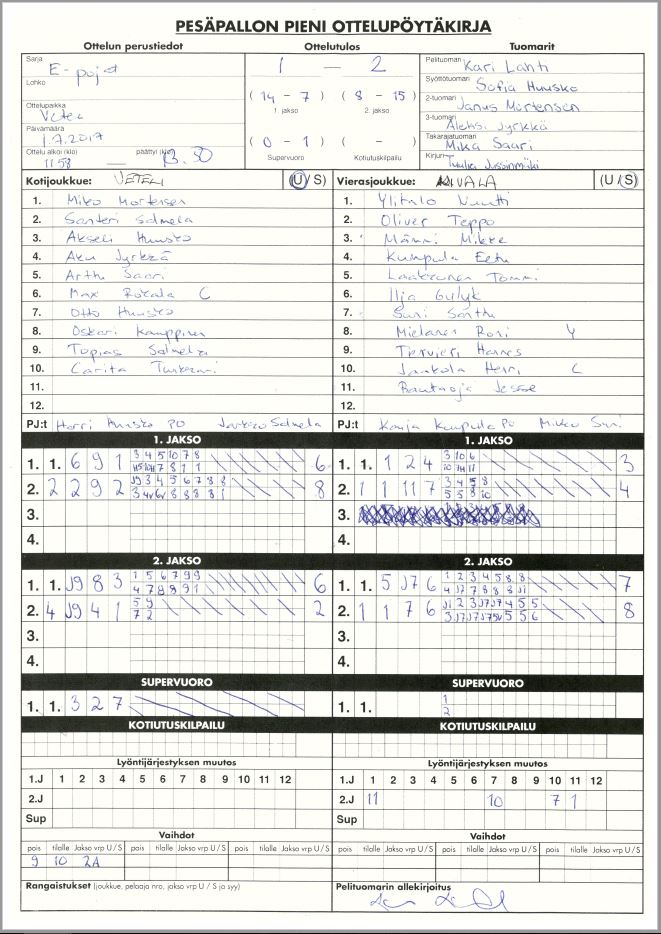 PESÄPALLON PIENI OTTELUPÖYTÄKIRJA
Ottelun perustiedot
Ottelutulos
Tuomarit
Sarja E-pojat
Lohko
Ottelupaikka Veteli
Päivämäärä 1.7.2017
Ottelu alkoi (klo) 11 58 — päättyi (klo) 13.30
1 — 2
(14 - 7) (8 - 15)
1. jakso 2. jakso
(0 - 1) ( - )
Supervuoro Kotiutuskilpailu
Pelituomari Kari Lahti
Syöttötuomari Sofia Huusko
2-tuomari Janus Mortensen
3-tuomari Aleksi Jyrkkä
Takarajatuomari Mika Saari
Kirjuri Tuulia Jussinmäki
Kotijoukkue: VETELI (U/S)
1. Miko Mortensen
2. Santeri Salmela
3. Akseli Huusko
4. Aku Jyrkkä
5. Arttu Saari
6. Max Rokala C
7. Otto Huusko
8. Oskari Kamppinen
9. Topias Salmela
10. Carita
11.
12.
PJ:t Harri Huusko PD Jarkko Salmela
Vierasjoukkue: (U/S)
1. Ylitalo Nuutti
2. Oliver Teppo
3. Männi Mikke
4. Kumpula Eetu
5. Laakkonen Tommi
6. Ilja Gulyk
7. Suni Santtu
8. Mielanen Roni Y
9. Tervieri Hannes
10. Jankola Henri C
11. Rautaoja Jesse
12.
PJ:t Kumpula PD Mikko Suni
1. JAKSO
1. 1. 6 9 1 6
2. 2 2 9 2 8
3.
4.
1. JAKSO
1. 1. 1 2 4 3
2. 1 1 11 7 4
3.
4.
2. JAKSO
1. 1. J9 8 3 6
2. 4 J9 4 1 5 9 7 2 2
3.
4.
2. JAKSO
1. 1. 5 J7 6 7
2. 1 1 7 6 8
3.
4.
SUPERVUORO
1. 1. 3 2 7
SUPERVUORO
1. 1. 1 2
KOTIUTUSKILPAILU
KOTIUTUSKILPAILU
Lyöntijärjestyksen muutos
1.J 1 2 3 4 5 6 7 8 9 10 11 12
2.J
Sup
Lyöntijärjestyksen muutos
1.J 1 2 3 4 5 6 7 8 9 10 11 12
2.J 11 10 7 1
Sup
Vaihdot
pois tilalle Jakso vrp U/S pois tilalle Jakso vrp U/S pois tilalle Jakso vrp U/S
9 10 2A
Vaihdot
pois tilalle Jakso vrp U/S pois tilalle Jakso vrp U/S pois tilalle Jakso vrp U/S
Rangaistukset (joukkue, pelaaja nro, jakso vrp U/S ja syy)
Pelituomarin allekirjoitus